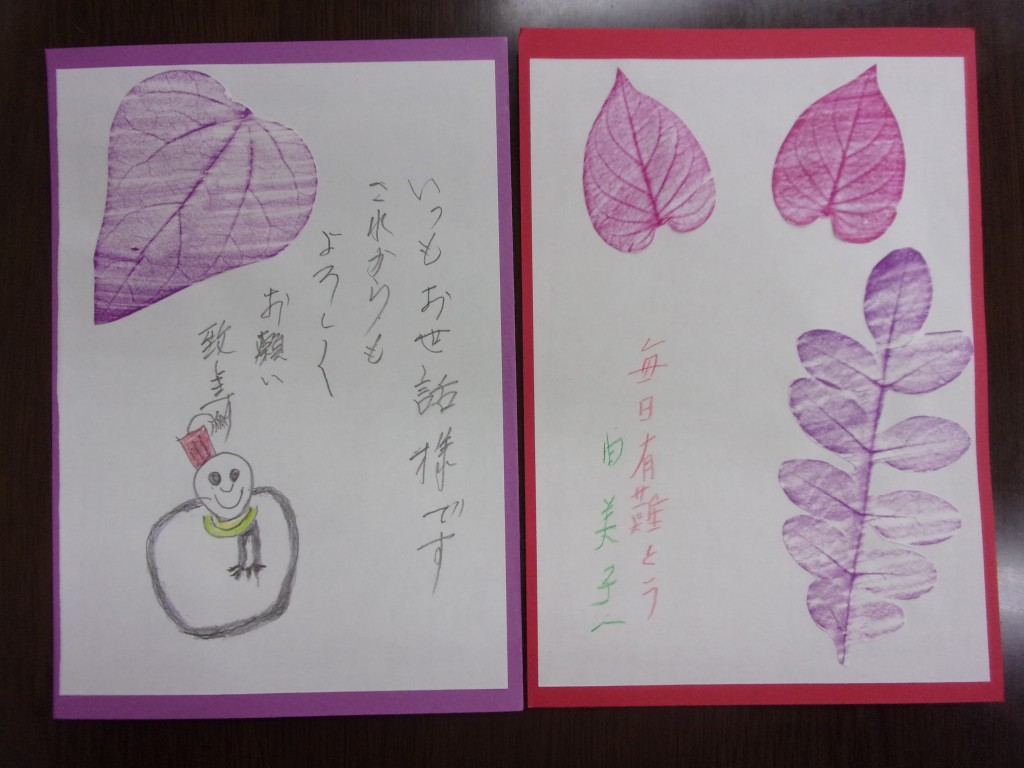 いつもお世話様です
これからも
よろしく
お願い
致
毎日有難とう
由美子へ